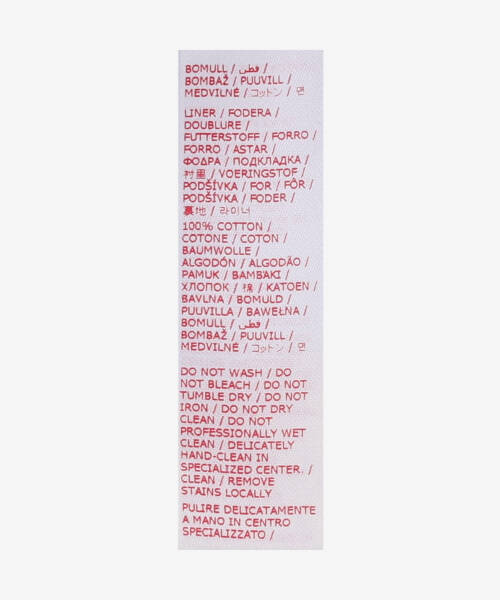 BOMULL / قطن /
BOMBAŽ / PUUVILL /
MEDVILNÉ / コットン / 면
LINER / FODERA /
DOUBLURE /
FUTTERSTOFF / FORRO /
FORRO / ASTAR /
ΦΟΔΡΑ / ПОДКЛАДКА /
衬里 / VOERINGSTOF /
PODŠÍVKA / FOR / FÔR /
PODŠÍVKA / FODER /
裏地 / 라이너
100% COTTON /
COTONE / COTON /
BAUMWOLLE /
ALGODÓN / ALGODÃO /
PAMUK / ΒΑΜΒΆΚΙ /
ХЛОПОК / 棉 / KATOEN /
BAVLNA / BOMULD /
PUUVILLA / BAWEŁNA /
BOMULL / قطن /
BOMBAŽ / PUUVILL /
MEDVILNÉ / コットン / 면
DO NOT WASH / DO
NOT BLEACH / DO NOT
TUMBLE DRY / DO NOT
IRON / DO NOT DRY
CLEAN / DO NOT
PROFESSIONALLY WET
CLEAN / DELICATELY
HAND-CLEAN IN
SPECIALIZED CENTER. /
CLEAN / REMOVE
STAINS LOCALLY
PULIRE DELICATAMENTE
A MANO IN CENTRO
SPECIALIZZATO /